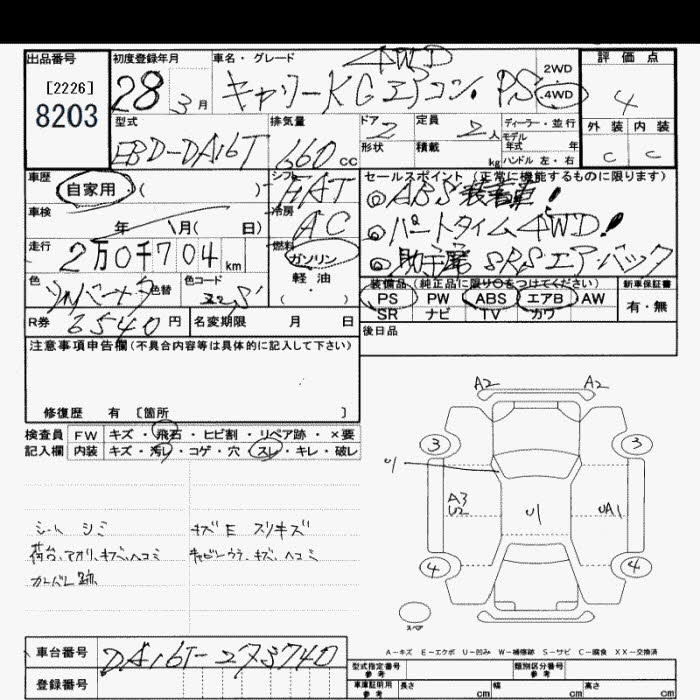 出品番号 初度登録年月 車名・グレード 4WD 評価点
[2226] 8203 28 3月 キャリーKCエアコン、PS 2WD 4WD 4
型式 排気量 ドア 2 定員 2人 ディーラー・並行 外装 内装
EBD-DA16T 660cc 形状 積載 kg モデル年式 年 ハンドル 左・右 C C
車歴 シフト セールスポイント (正常に機能するものに限ります)
自家用 ( ) FAT ◎ABS装着車!
車検 年 月( 日) 冷房 AC ◎パートタイム4WD!
走行 2万0千704km 燃料 ガソリン ◎助手席SRSエアバック
色 色替 色コード 軽油 装備品 (純正品に限り○をつけてください) 新車保証書
( ) PS PW ABS エアB AW
SR ナビ TV カワ 有・無
R券 6540円 名変期限 月 日 後日品
注意事項申告欄(不具合内容等は具体的に記入して下さい)
修復歴 有 [箇所 ]
検査員 FW キズ・飛石・ヒビ割・リペア跡・×要
記入欄 内装 キズ・汚レ・コゲ・穴・スレ・キレ・破レ
A2 A2
3 3
U
A3
U2 U UA1
シート シミ キズE スリキズ
荷台、アオリ、キズ、ヘコミ キャビンウラ、キズ、ヘコミ
カーバレ跡
4 4
スペア
A-キズ E-エクボ U-凹み W-補修跡 S-サビ C-腐食 XX-交換済
車台番号 DA16T-273740 型式指定番号 参考 類別区分番号 参考
登録番号 車庫証明用 参考 長さ cm 幅 cm 高さ cm